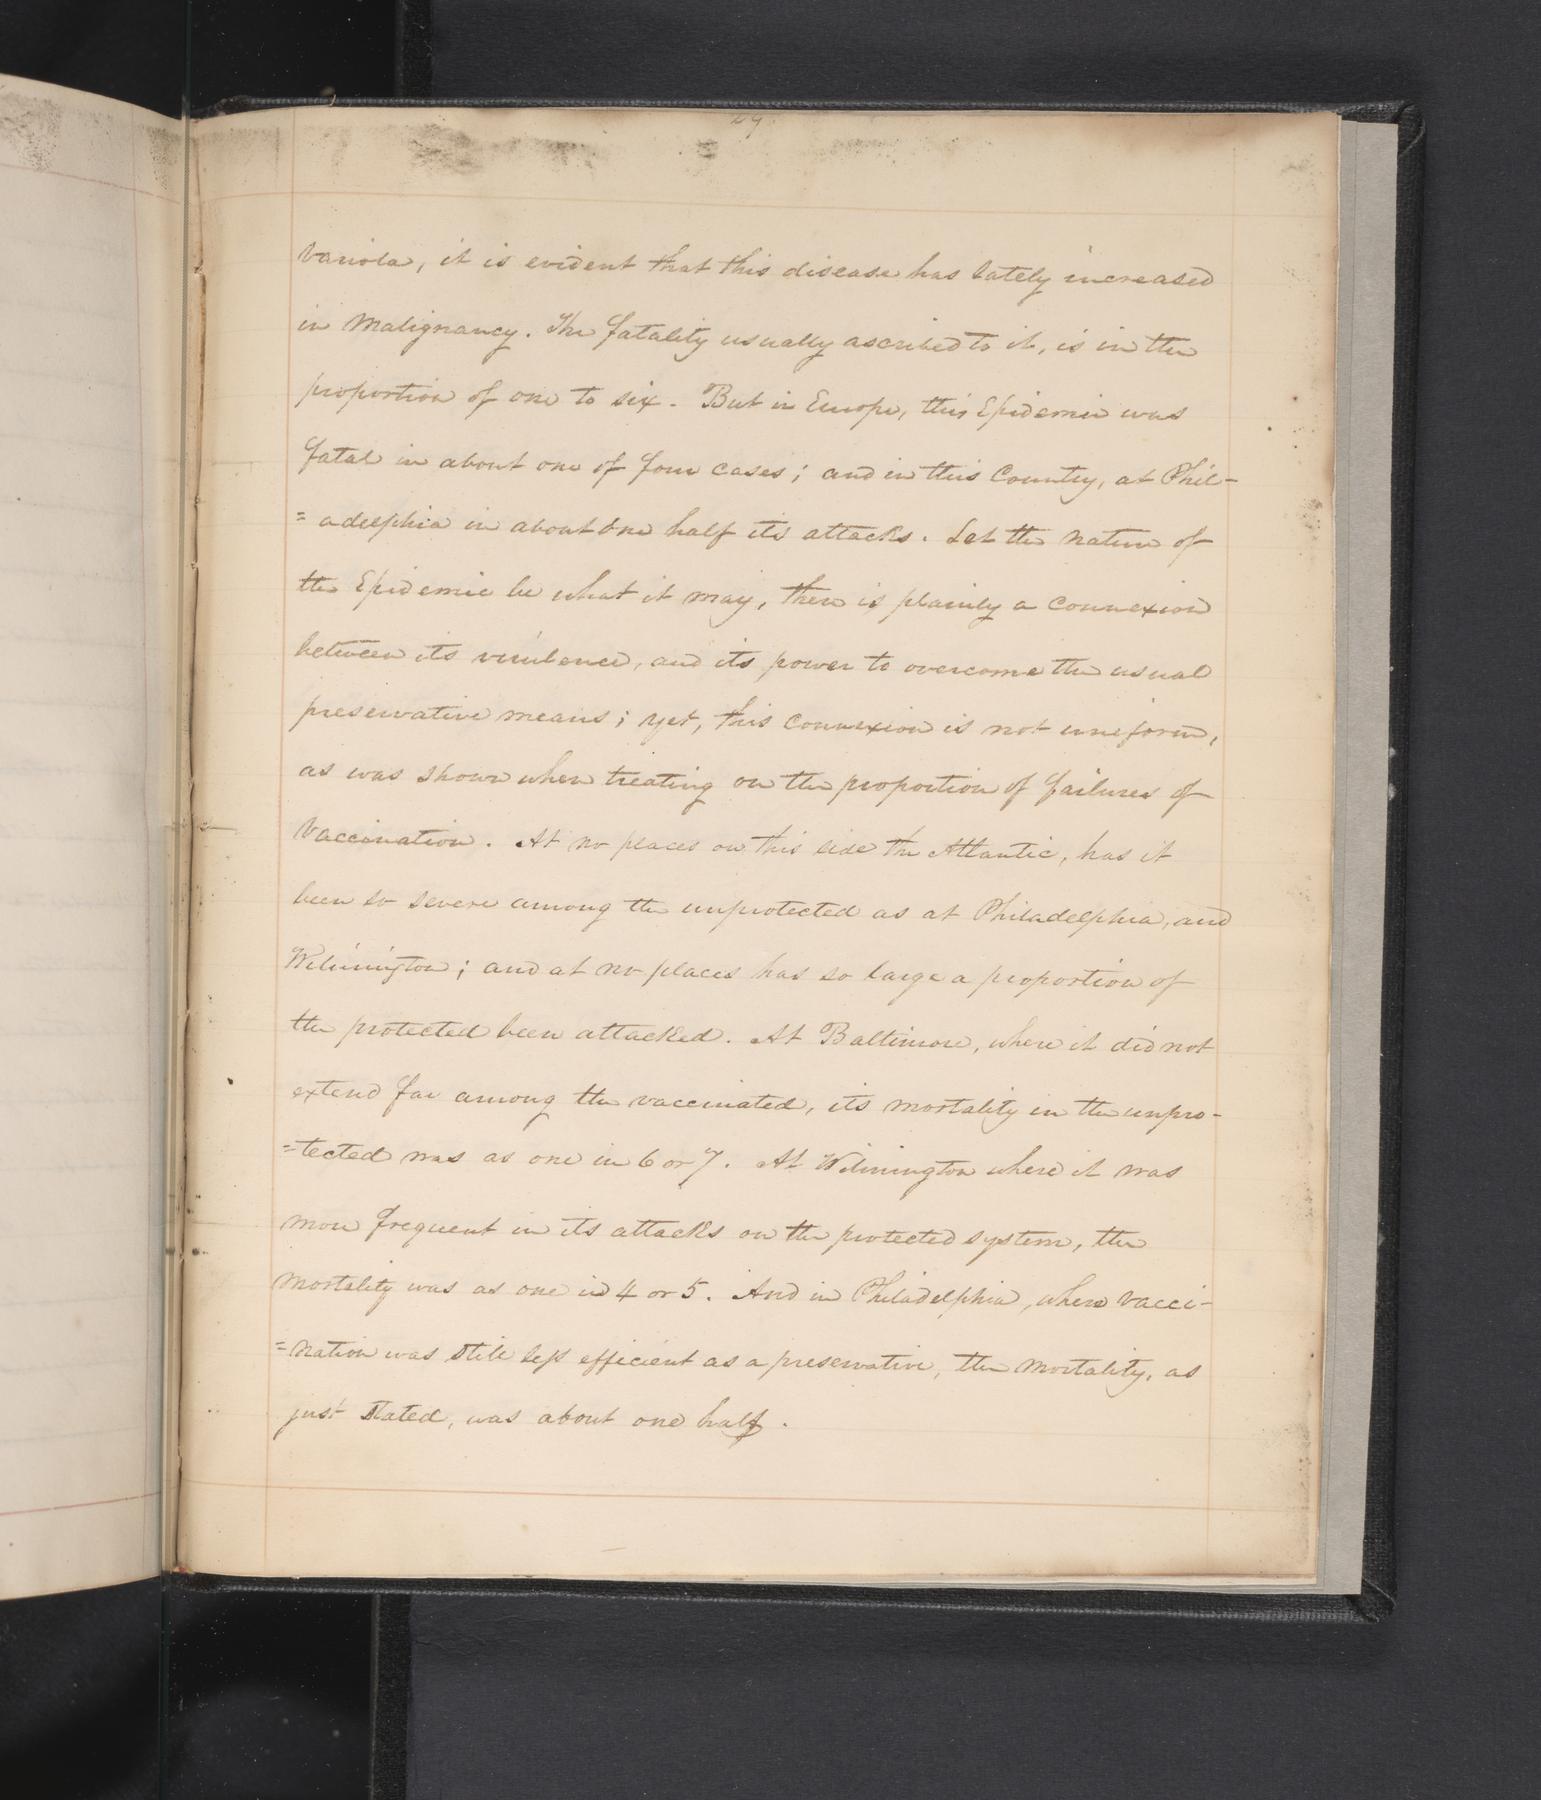 29
Variola, it is evident that this disease has lately increased
in Malignancy. The fatality usually ascribed to it, is in the
proportion of one to six. But in Europe, this Epidemic was
fatal in about one of four cases; and in this Country, at Phil-
=adelphia in about one half its attacks. Let the nature of
the Epidemic be what it may, there is plainly a connexion
between its virulence, and its power to overcome the usual
preservative means; yet, this connexion is not uniform,
as was shown when treating on the proportion of failures of
Vaccination. At no places on this side the Atlantic, has it
been so severe among the unprotected as at Philadelphia, and
Wilmington; and at no places has so large a proportion of
the protected been attacked. At Baltimore, where it did not
extend far among the vaccinated, its mortality in the unpro-
=tected was as one in 6 or 7. At Wilmington where it was
more frequent in its attacks on the protected system, the
mortality was as one in 4 or 5. And in Philadelphia, where vacci-
=nation was still less efficient as a preservative, the mortality, as
just stated, was about one half.